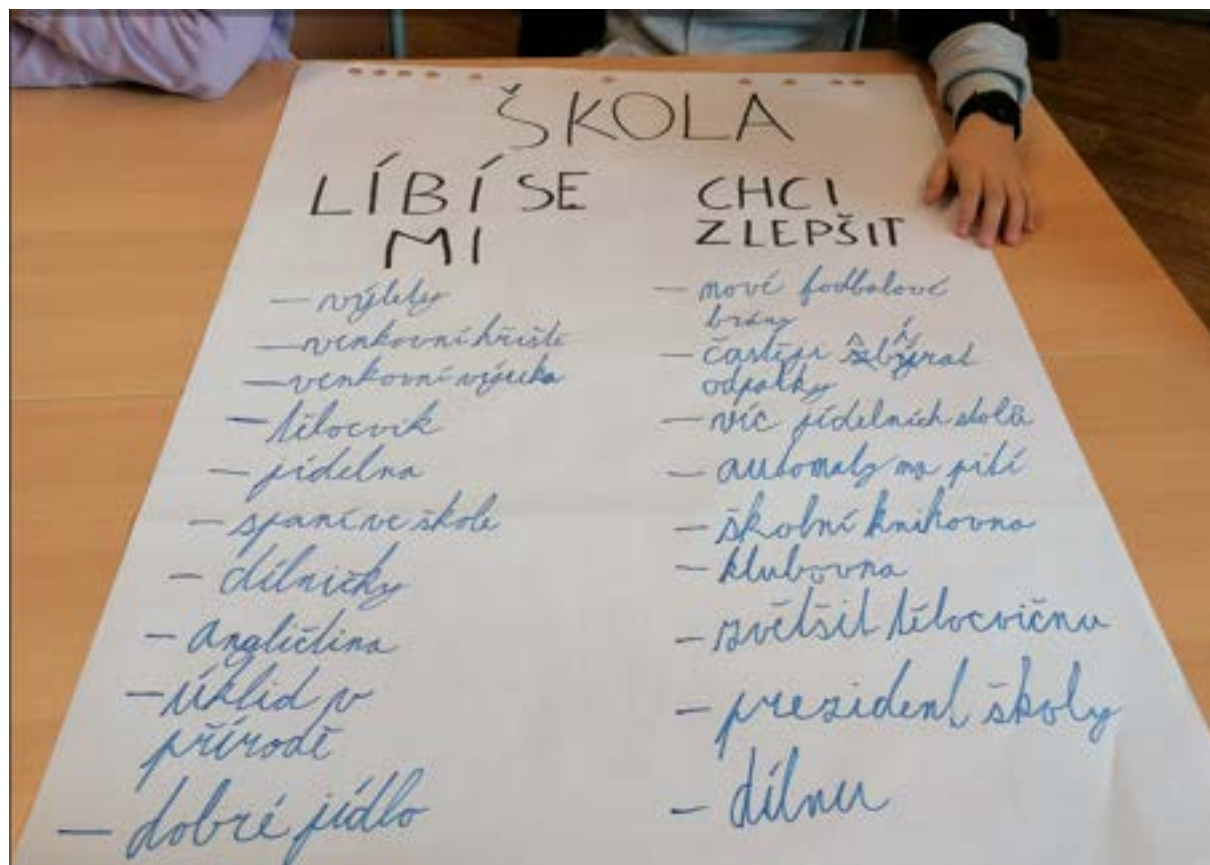 ŠKOLA
LÍBÍ SE
MI
– výlety
– venkovní hřiště
– venkovní výuka
– tělocvik
– jídelna
– spaní ve škole
– dílničky
– angličtina
– úklid v
přírodě
– dobré jídlo
CHCI
ZLEPŠIT
– nové fodbalové
brány
– častěji sbírat
odpatky
– víc jídelních stolů
– automaty na pití
– školní knihovna
– klubovna
– zvětšit tělocvičnu
– prezident školy
– dílnu